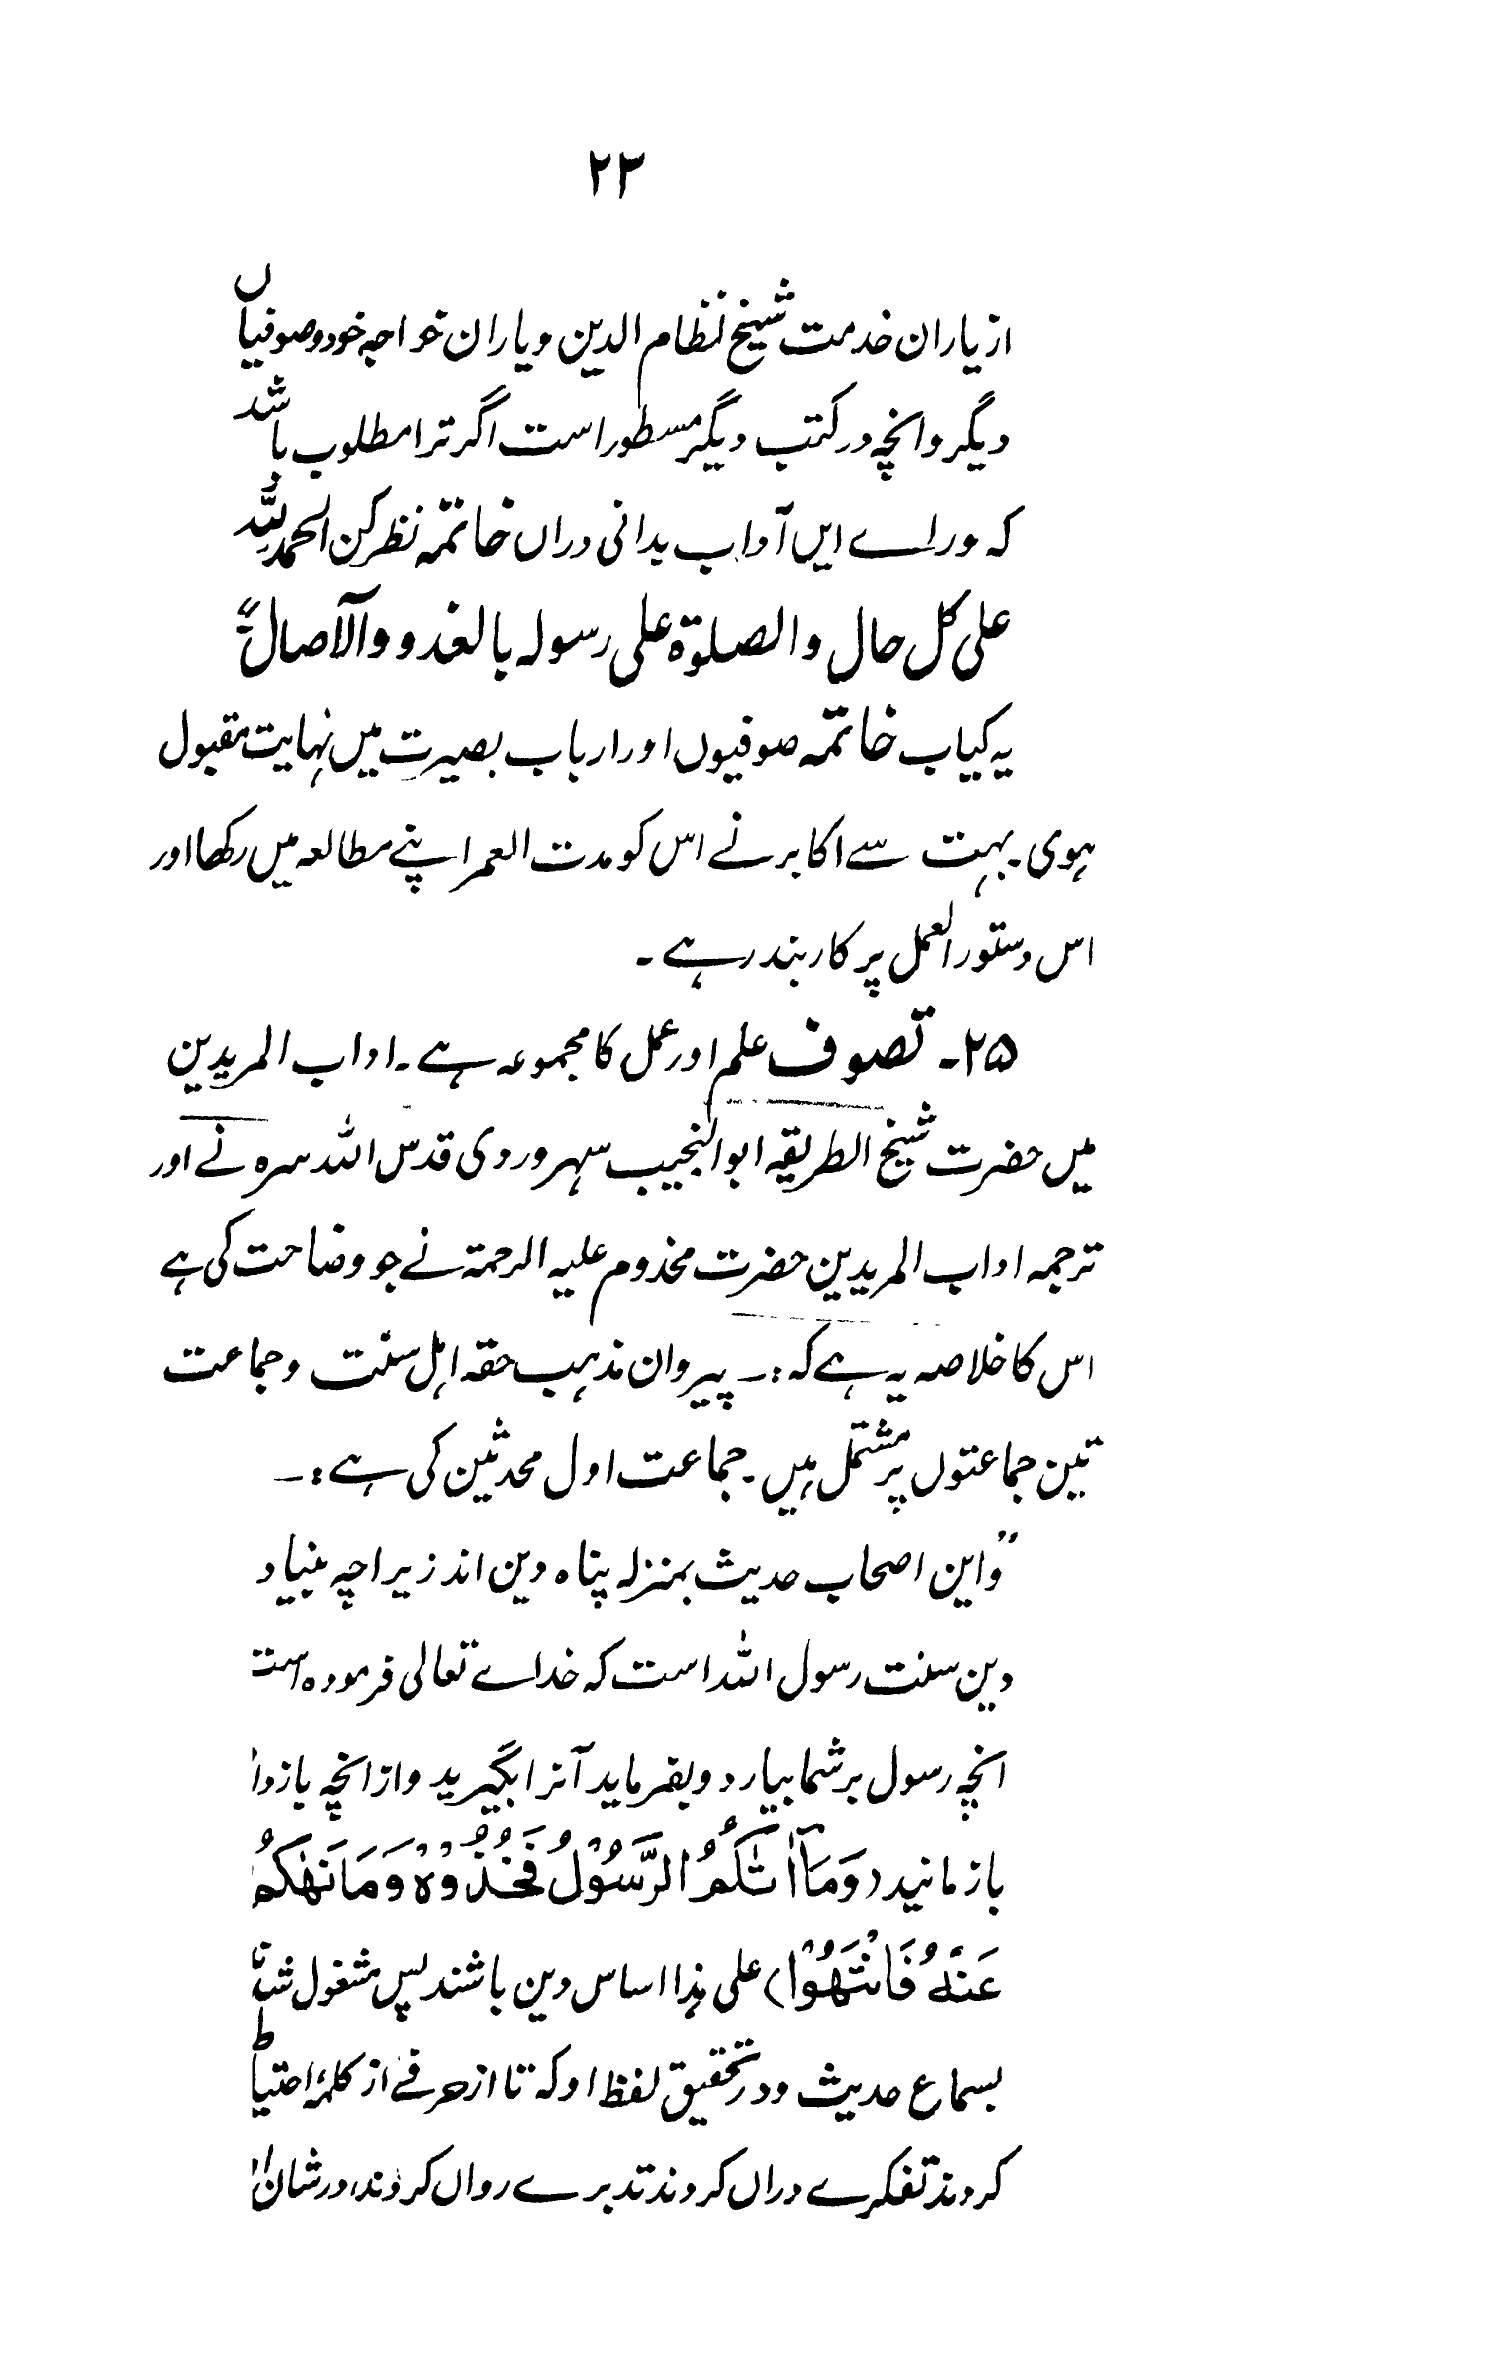 ۲۳
از یاران خدمت شیخ نظام الدین و یاران خواجہ خود و صوفیاں
دیگر و انچہ در کتب دیگر مسطور است اگر ترا مطلوب باشد
کہ وراے ایں آداب بدانی دراں خاتمہ نظر کن الحمد للہ
علی کل حال والصلوۃ علی رسولہ بالغدو والآصال
یہ کیاب خاتمہ صوفیوں اور ارباب بصیرت میں نہایت مقبول
ہوی۔ بہت سے اکابر نے اس کو مدت العمر اپنے مطالعہ میں رکھا اور
اس دستور العمل پر کاربند رہے ۔
۲۵۔ تصوف علم اور عمل کا مجموعہ ہے ۔ اداب المریدین
میں حضرت شیخ الطریقہ ابوالنجیب سہروردی قدس اللہ سرہ نے اور
ترجمہ اداب المریدین حضرت مخدوم علیہ الرحمۃ نے جو وضاحت کی ہے
اس کا خلاصہ یہ ہے کہ :۔ پیروان مذہب حقہ اہل سنت و جماعت
تین جماعتوں پر مشتمل ہیں ۔ جماعت اول محدثین کی ہے :۔
”واین اصحاب حدیث بمنزلہ پناہ دین اند زیراچہ بنیاد
دین سنت رسول اللہ است کہ خداے تعالی فرمودہ است
انچہ رسول بر شما بیارد و بفرماید آنرا بگیرید و از انچہ باز دا
باز مانید (وَمَآ اٰتٰکُمُ الرَّسُوْلُ فَخُذُوْہُ وَمَا نَھٰکُمْ
عَنْہُ فَانْتَھُوْا) علی ہذا اساس دین باشند پس مشغول شدند
بسماع حدیث و در تحقیق لفظ او کہ تا از حرفے از کلمۂ احتیاط
کردند تفکرے دراں کردند تدبرے رواں کردند، در شان